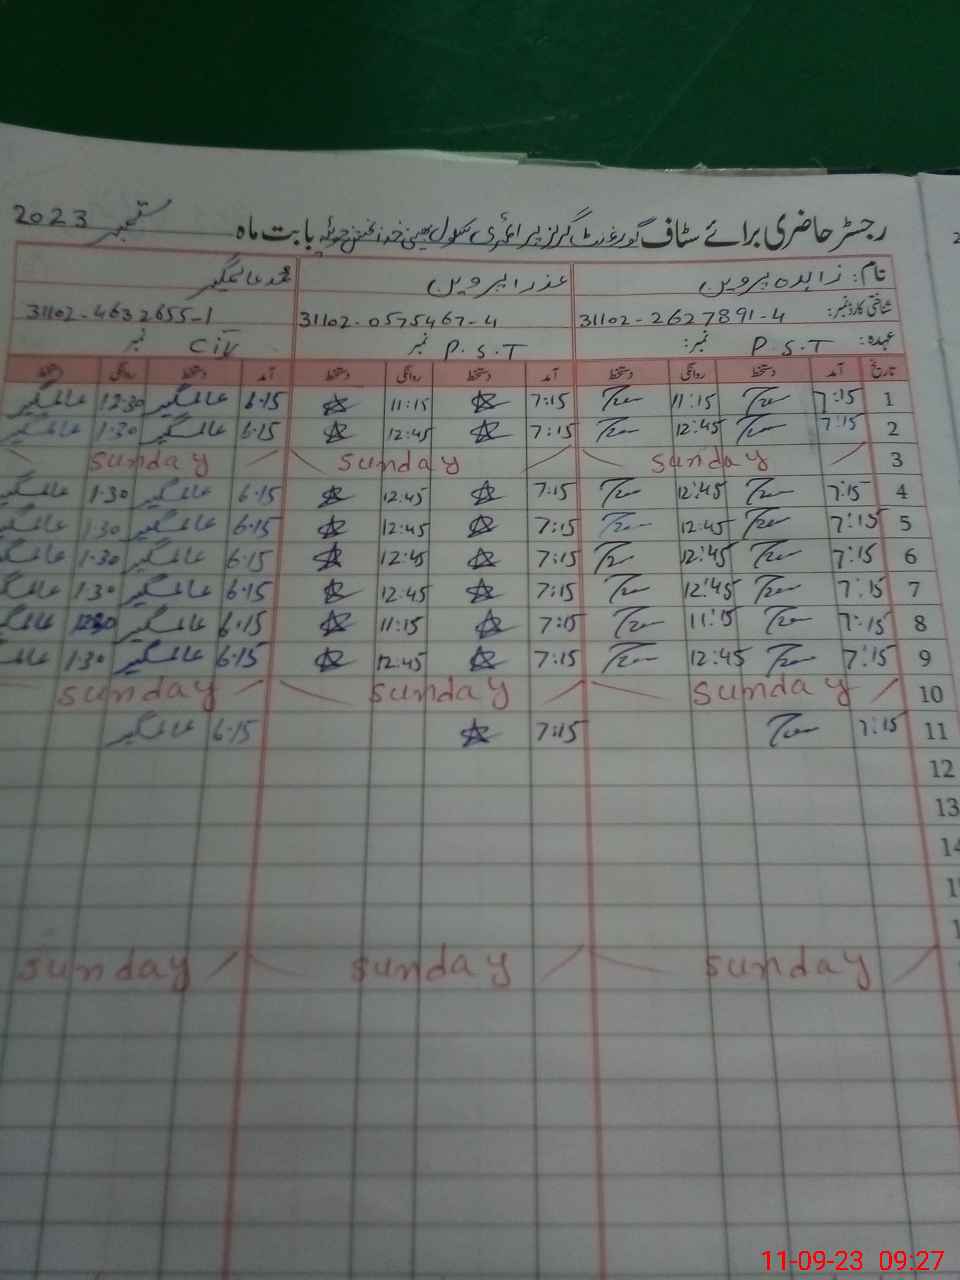 رجسٹر حاضری برائے سٹاف گورنمنٹ گرلز پرائمری سکول بابت ماہ ستمبر 2023
نام: زاہدہ پروین عذرا پروین محمد عالمگیر
شناختی کارڈ نمبر: 31102-2627891-4 31102-0575467-4 31102-4632655-1
عہدہ: P.S.T نمبر: P.S.T نمبر Civ نمبر
تاریخ آمد دستخط روانگی دستخط آمد دستخط روانگی دستخط آمد دستخط روانگی دستخط
1 7:15 11:15 7:15 11:15 6-15 عالمگیر 12-30 عالمگیر
2 7:15 12:45 7:15 12:45 6-15 عالمگیر 1-30 عالمگیر
3 sunday sunday sunday
4 7:15 12:45 7:15 12:45 6-15 عالمگیر 1-30 عالمگیر
5 7:15 12:45 7:15 12:45 6-15 عالمگیر 1-30 عالمگیر
6 7:15 12:45 7:15 12:45 6-15 عالمگیر 1-30 عالمگیر
7 7:15 12:45 7:15 12:45 6-15 عالمگیر 1-30
8 7:15 11:15 7:15 11:15 6-15 عالمگیر
9 7:15 12:45 7:15 12:45 6-15 عالمگیر 1-30
10 sunday sunday sunday
11 7:15 7:15 6-15 عالمگیر
12
13
14
sunday sunday sunday
11-09-23 09:27